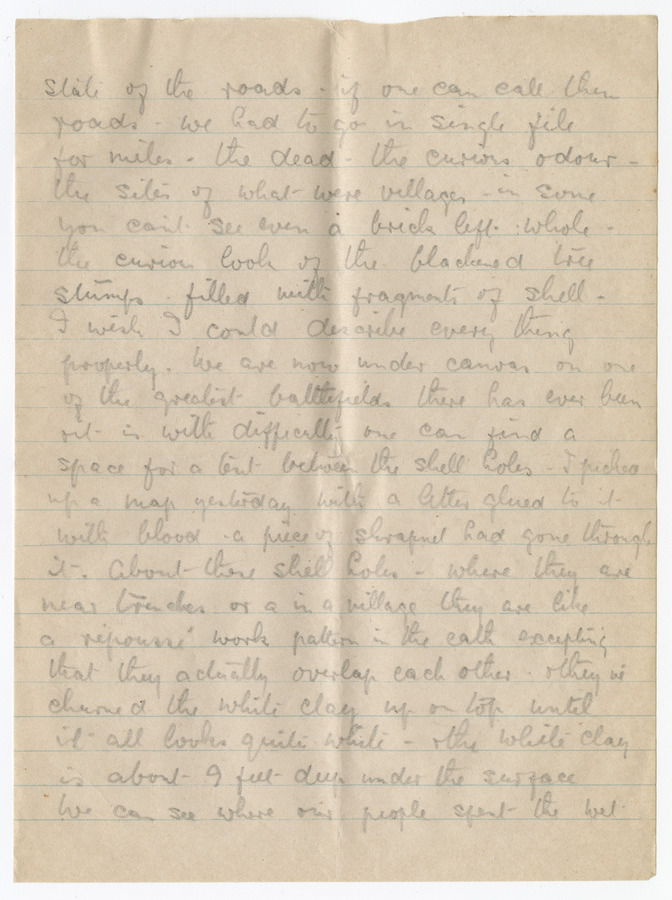 state of the roads - if one can call them
roads - we had to go in single file
for miles - the dead - the curious odour -
the sites of what were villages - in some
you can't see even a brick left whole -
the curious look of the blackened tree
stumps - filled with fragments of shell -
I wish I could describe every thing
properly. We are now under canvas on one
of the greatest battlefields there has ever been
& it is with difficulty one can find a
space for a tent between the shell holes - I picked
up a map yesterday with a letter glued to it
with blood - a piece of shrapnel had gone through
it. About these shell holes - where they are
near trenches or a in a village they are like
a "repoussé" work pattern in the earth excepting
that they actually overlap each other - & they've
churned the white clay up on top until
it all looks quite white - & the white clay
is about 9 feet deep under the surface
We can see where our people spent the wet